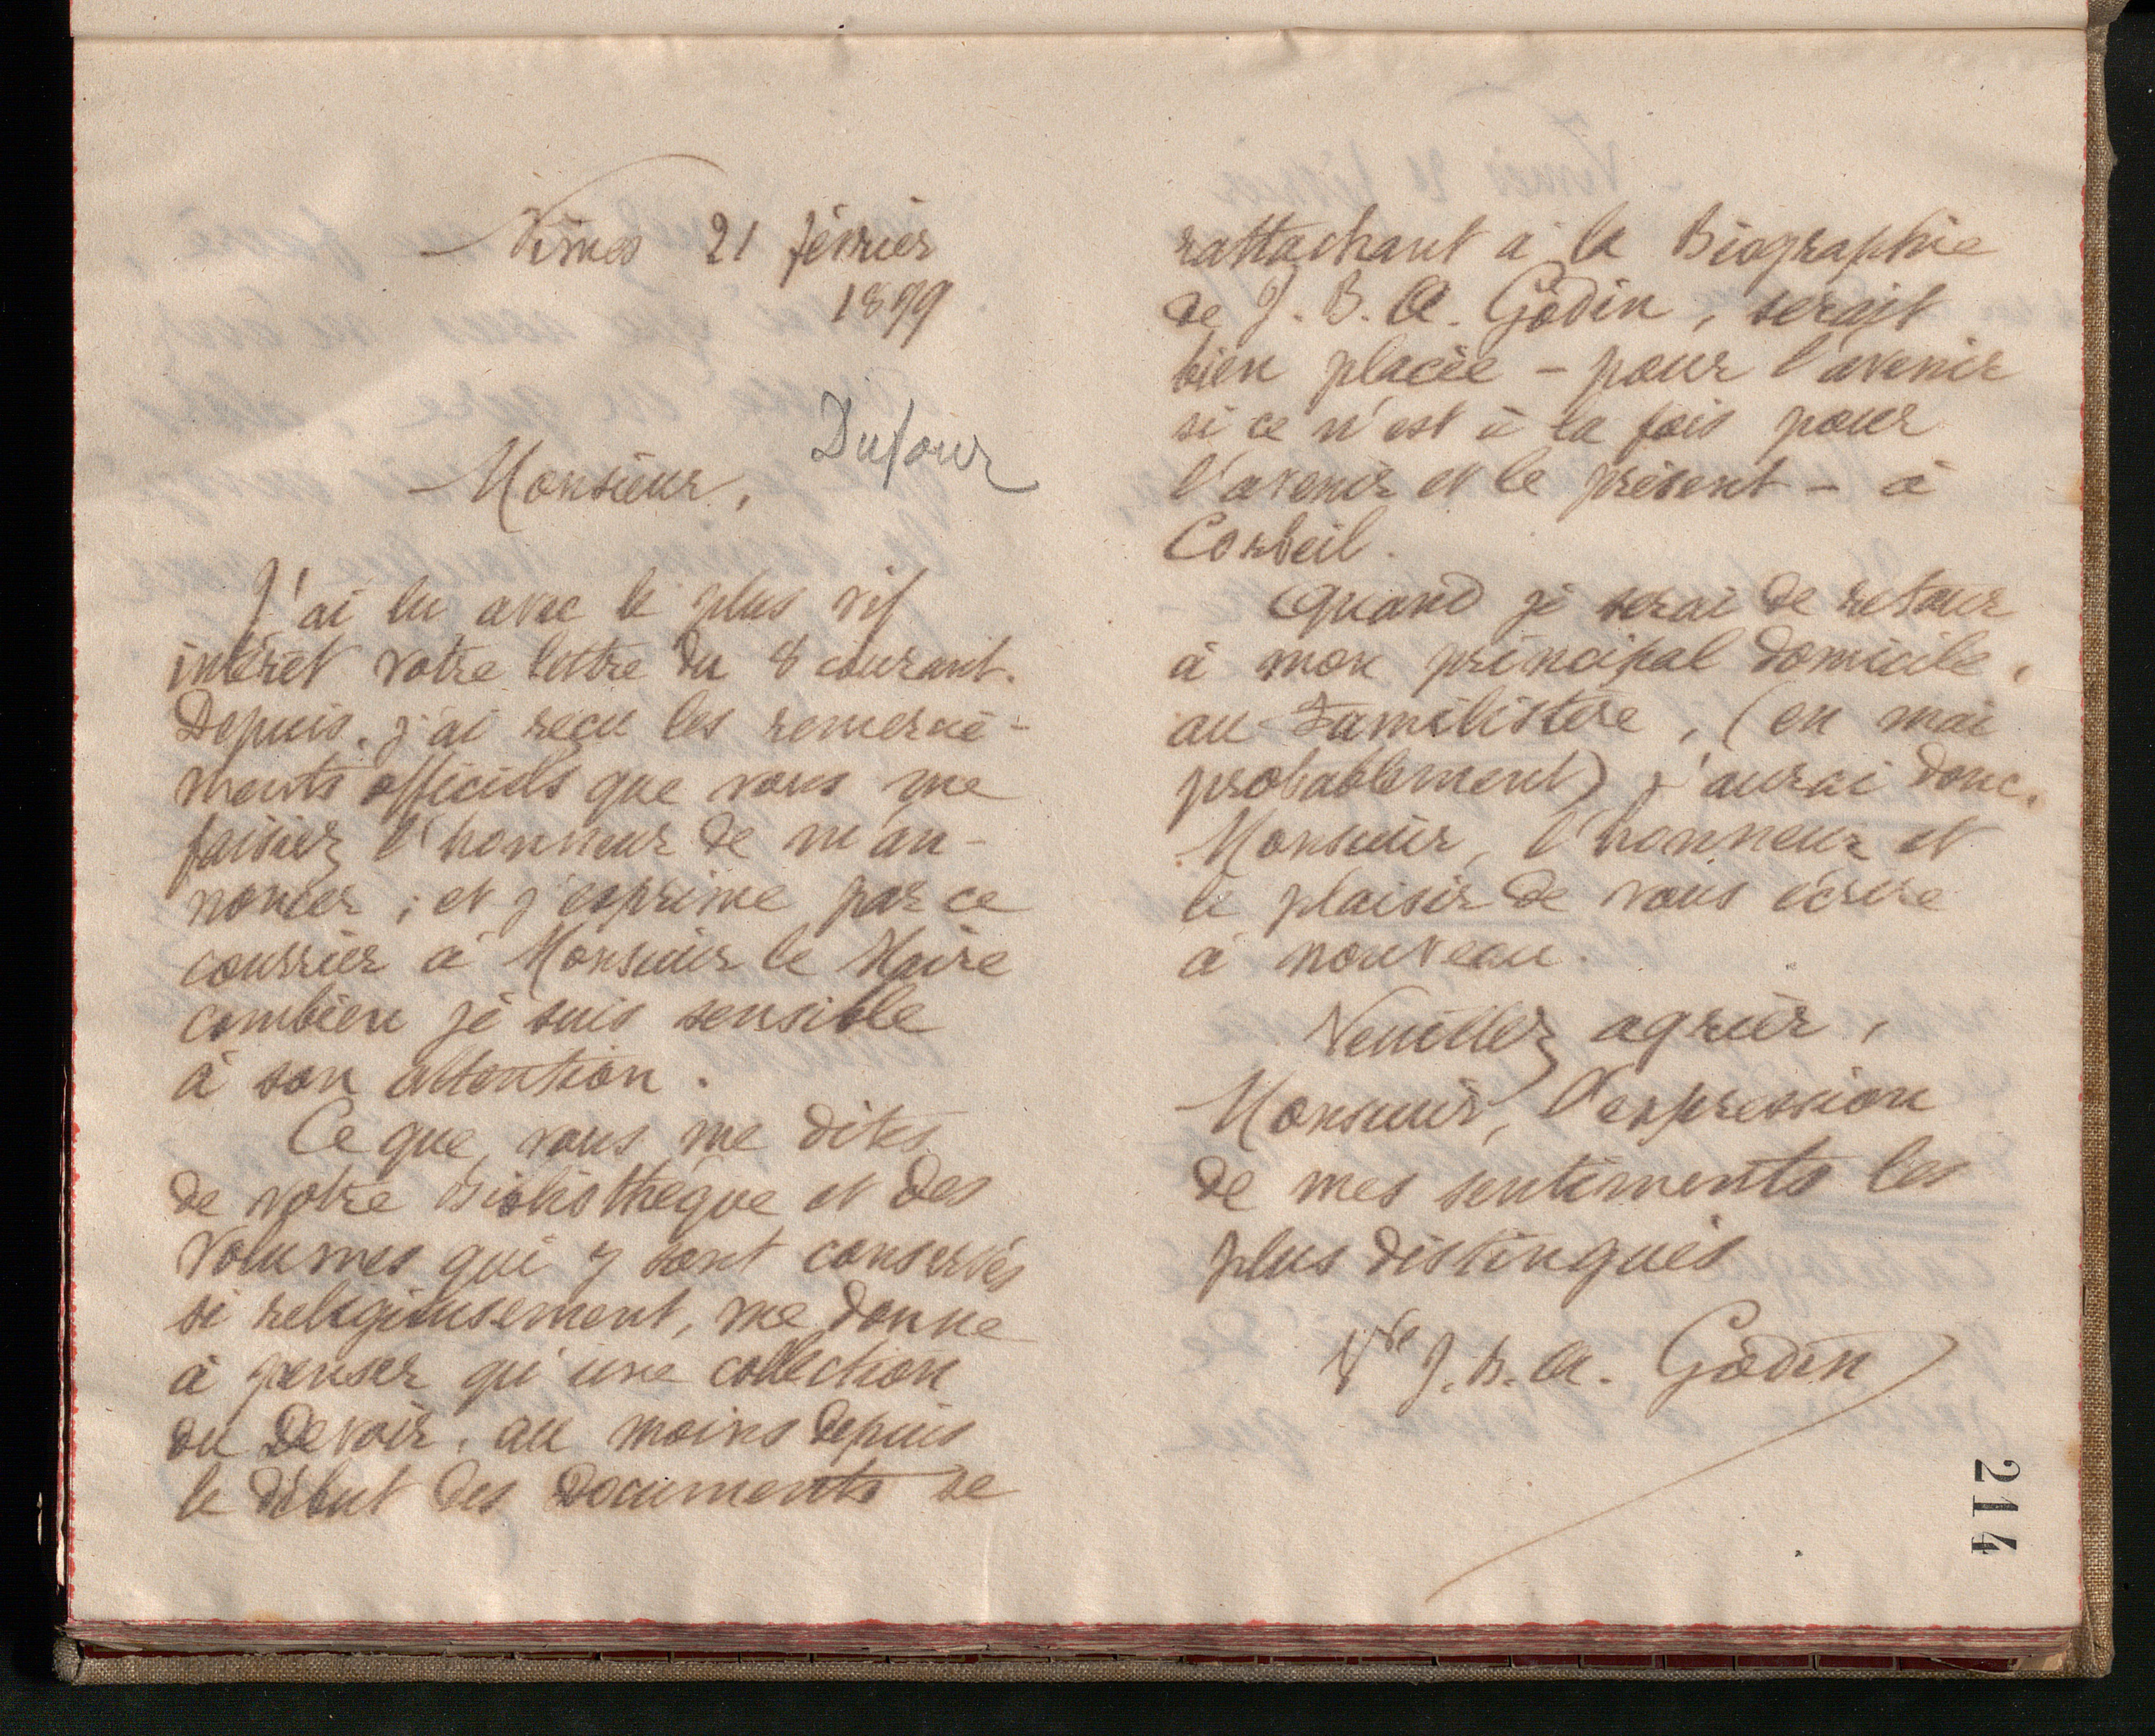 Nîmes 21 février
1899
Dufour
Monsieur,
J'ai lu avec le plus vif
intérêt votre lettre du 8 courant.
Depuis, j'ai reçu les remercie-
ments officiels que vous me
faisiez l'honneur de m'an-
noncer ; et j'exprime par ce
courrier à Monsieur le Maire
combien je suis sensible
à son attention.
Ce que vous me dites
de votre Bibliothèque et des
volumes qui y sont conservés
si religieusement, me donne
à penser qu'une collection
du Devoir, au moins depuis
le début des Documents se
rattachant à la Biographie
de J. B. A. Godin, serait
bien placée – pour l'avenir
si ce n'est à la fois pour
l'avenir et le présent – à
Corbeil.
Quand je serai de retour
à mon principal domicile,
au Familistère, (en mai
probablement) j'aurai donc,
Monsieur, l'honneur et
le plaisir de vous écrire
à nouveau.
Veuillez agréer,
Monsieur, l'expression
de mes sentiments les
plus distingués
Vve J. B. A. Godin
214